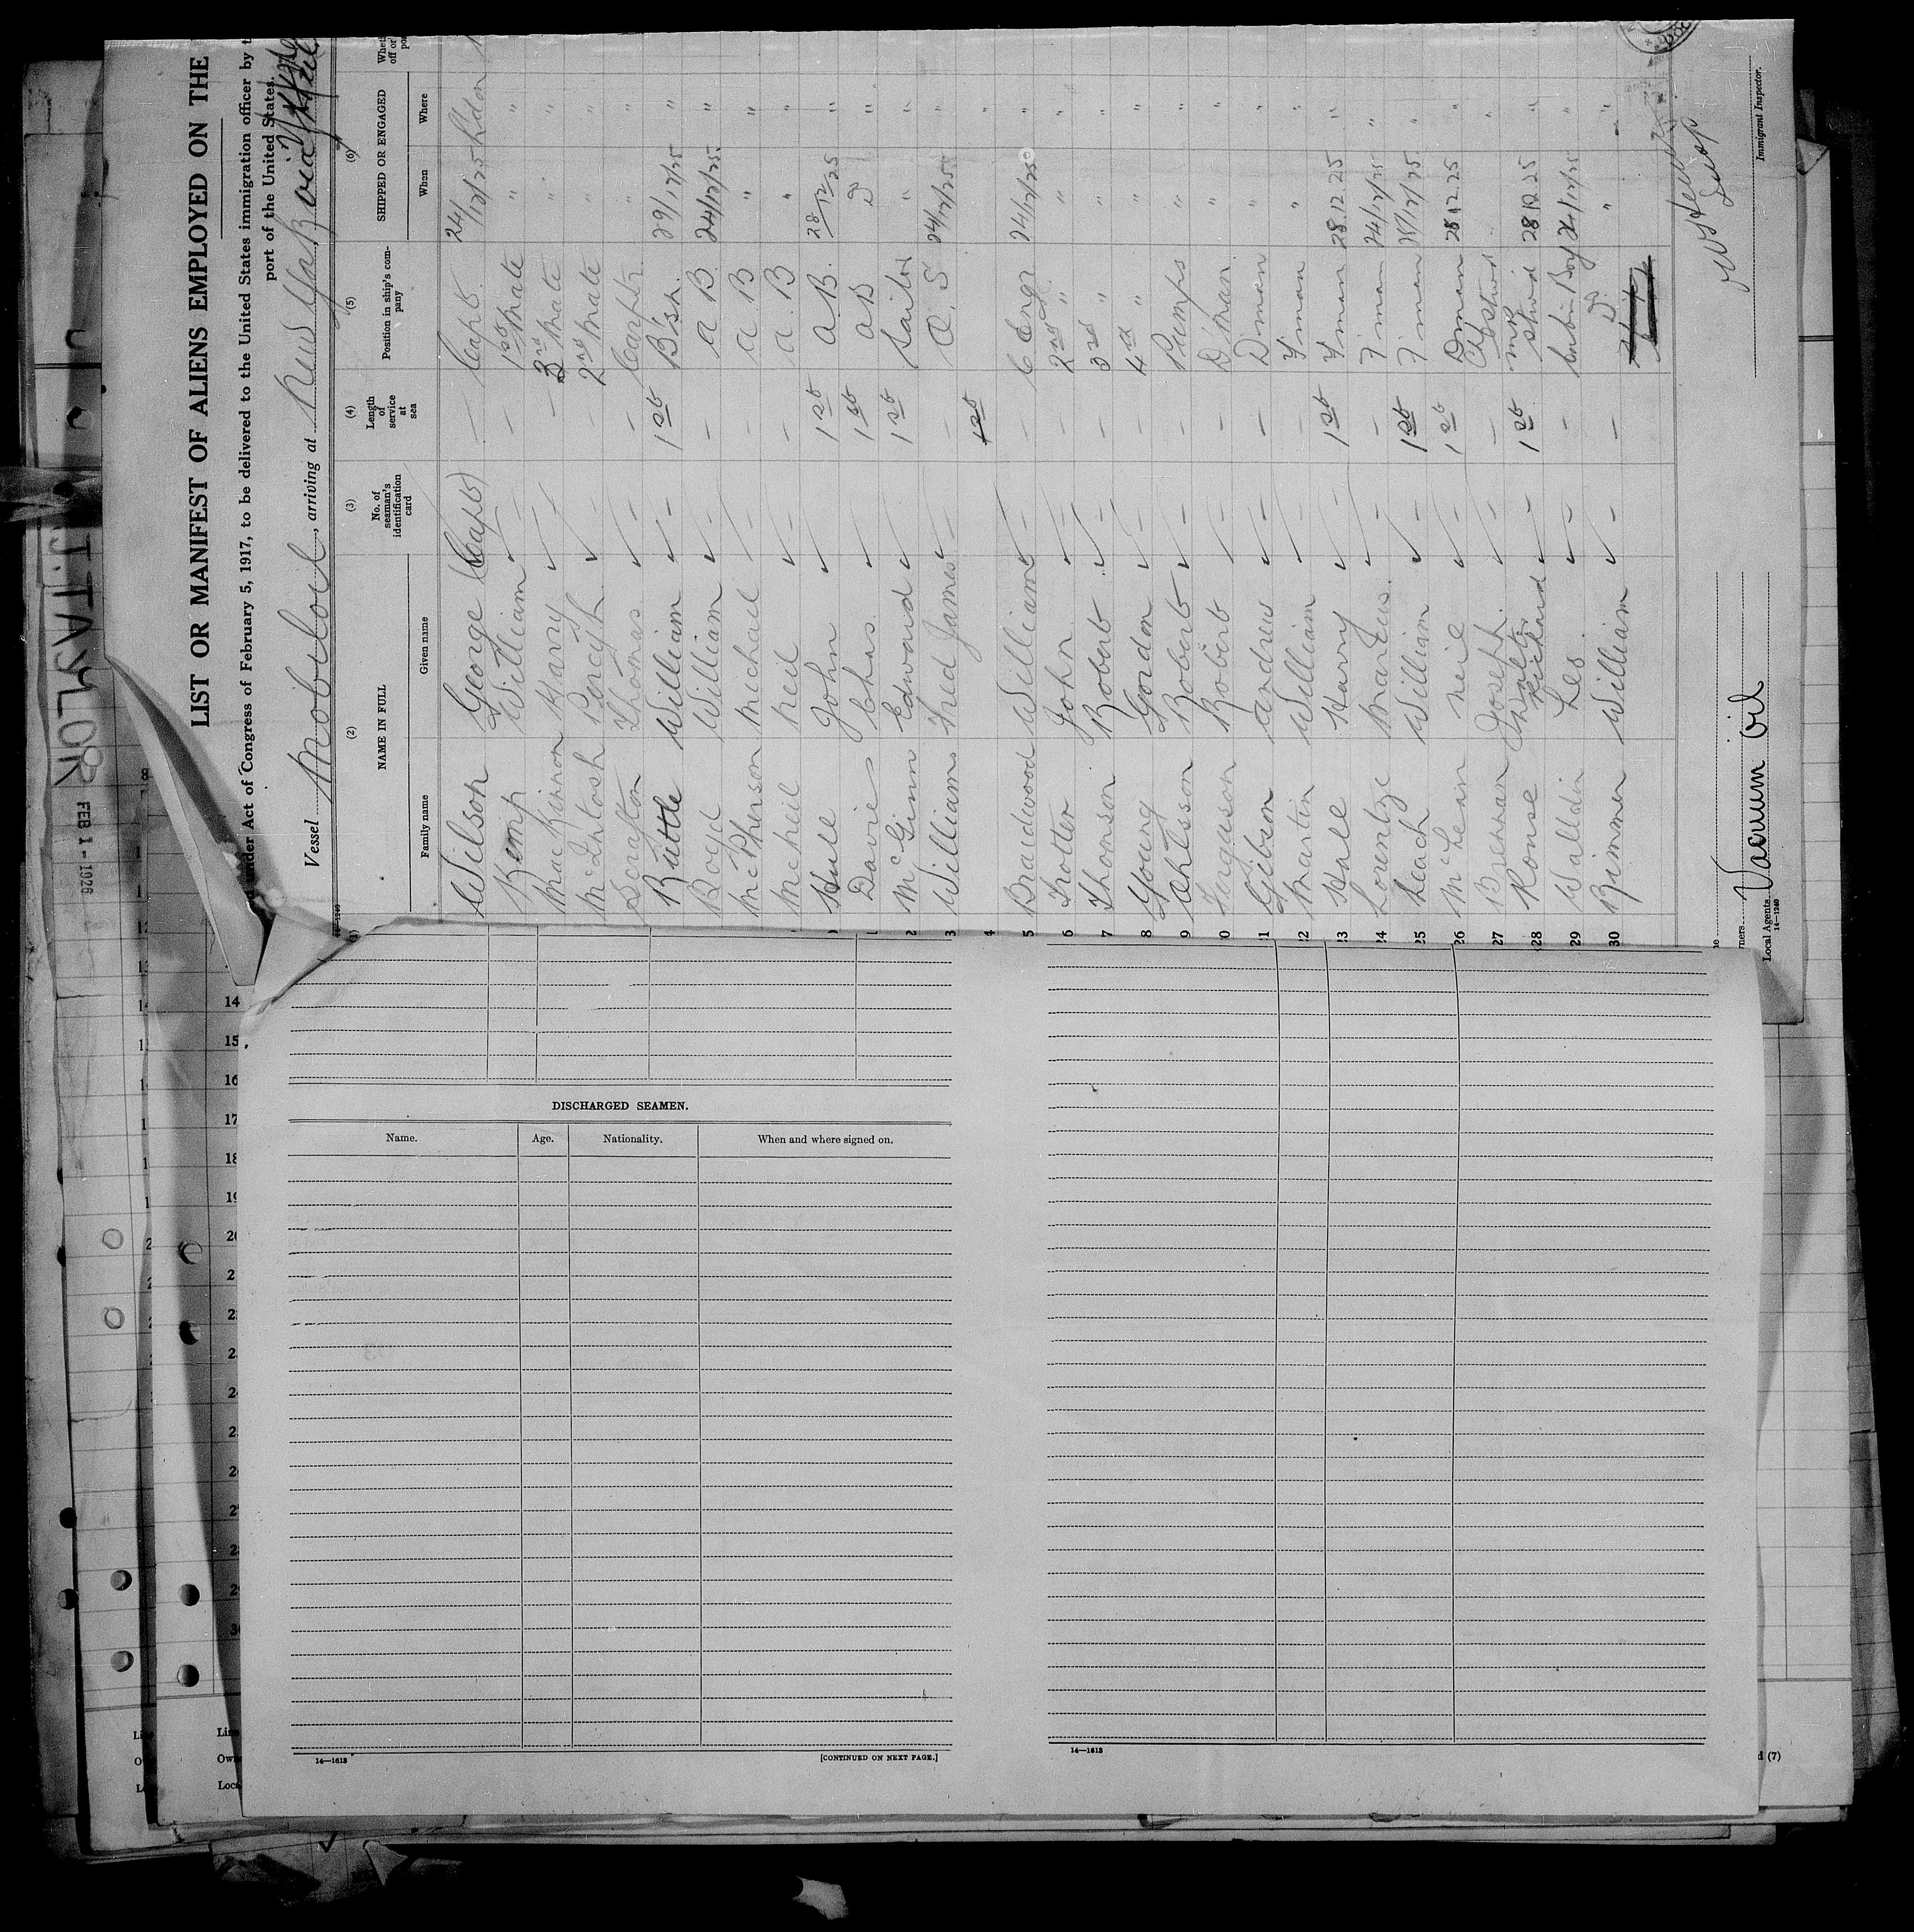 LIST OR MANIFEST OF ALIENS EMPLOYED ON THE
under Act of Congress of February 5, 1917, to be delivered to the United States immigration officer by
port of the United States.
Vessel Mobiloil, arriving at New York via
(2) (3) (4) (5) (6)
NAME IN FULL No. of seaman's identification card Length of service at sea Position in ship's company SHIPPED OR ENGAGED
Family name Given name When Where
Wilson George (Capt) — Capt. 24/12/25 London
Kemp William — — 1st Mate " "
MacKinnon Harry — 3rd Mate " "
McIntosh Percy — — 2nd Mate " "
Scrafton Thomas — — Carptr " "
Buttle William — 1st B'sn. 29/12/25 "
Boyd William — — A B 24/12/25 "
McPherson Michael — — A B " "
McNeil Neil — — A.B " "
Hull John — 1st A.B. 28/12/25 "
Davies Chas. — 1st A B D "
McGinn Edward — 1st Sailor " "
Williams Fred James — O.S 24/12/25 "
4 1st "
5 Braidwood William — — C Engr 24/12/25 "
6 Trotter John — — 2nd " " "
7 Thomson Robert — — 3rd " " "
8 Young Gordon — — 4th " " "
9 Robert — — Pumps " "
0 Ferguson Robert — — D'man " "
1 Gibson Andrew — — D'man " "
2 Martin William — — F'man " "
23 Hall Harry — 1st F'man 28.12.25 "
24 Lorentze Martius — — F'man 24/12/25 "
25 Leach William — 1st F'man 28/12/25 "
26 McLean Neil — 1st D'man 28.12.25 "
27 Brennan Joseph — — Ch Stwd " "
28 Rouse Walter Richard — 1st Stwd 28.12.25 "
29 Walldin Les — — Cabin Boy 24/12/25 "
30 Rimmer William — — D. " "
Vacuum Oil
Local Agents
14—1240
Immigrant Inspector.
J. TAYLOR
FEB 1 - 1926
8
12
13
14
15
16
17
18
19
DISCHARGED SEAMEN.
Name. Age. Nationality. When and where signed on.
14—1613 [CONTINUED ON NEXT PAGE.]
14—1613
(7)